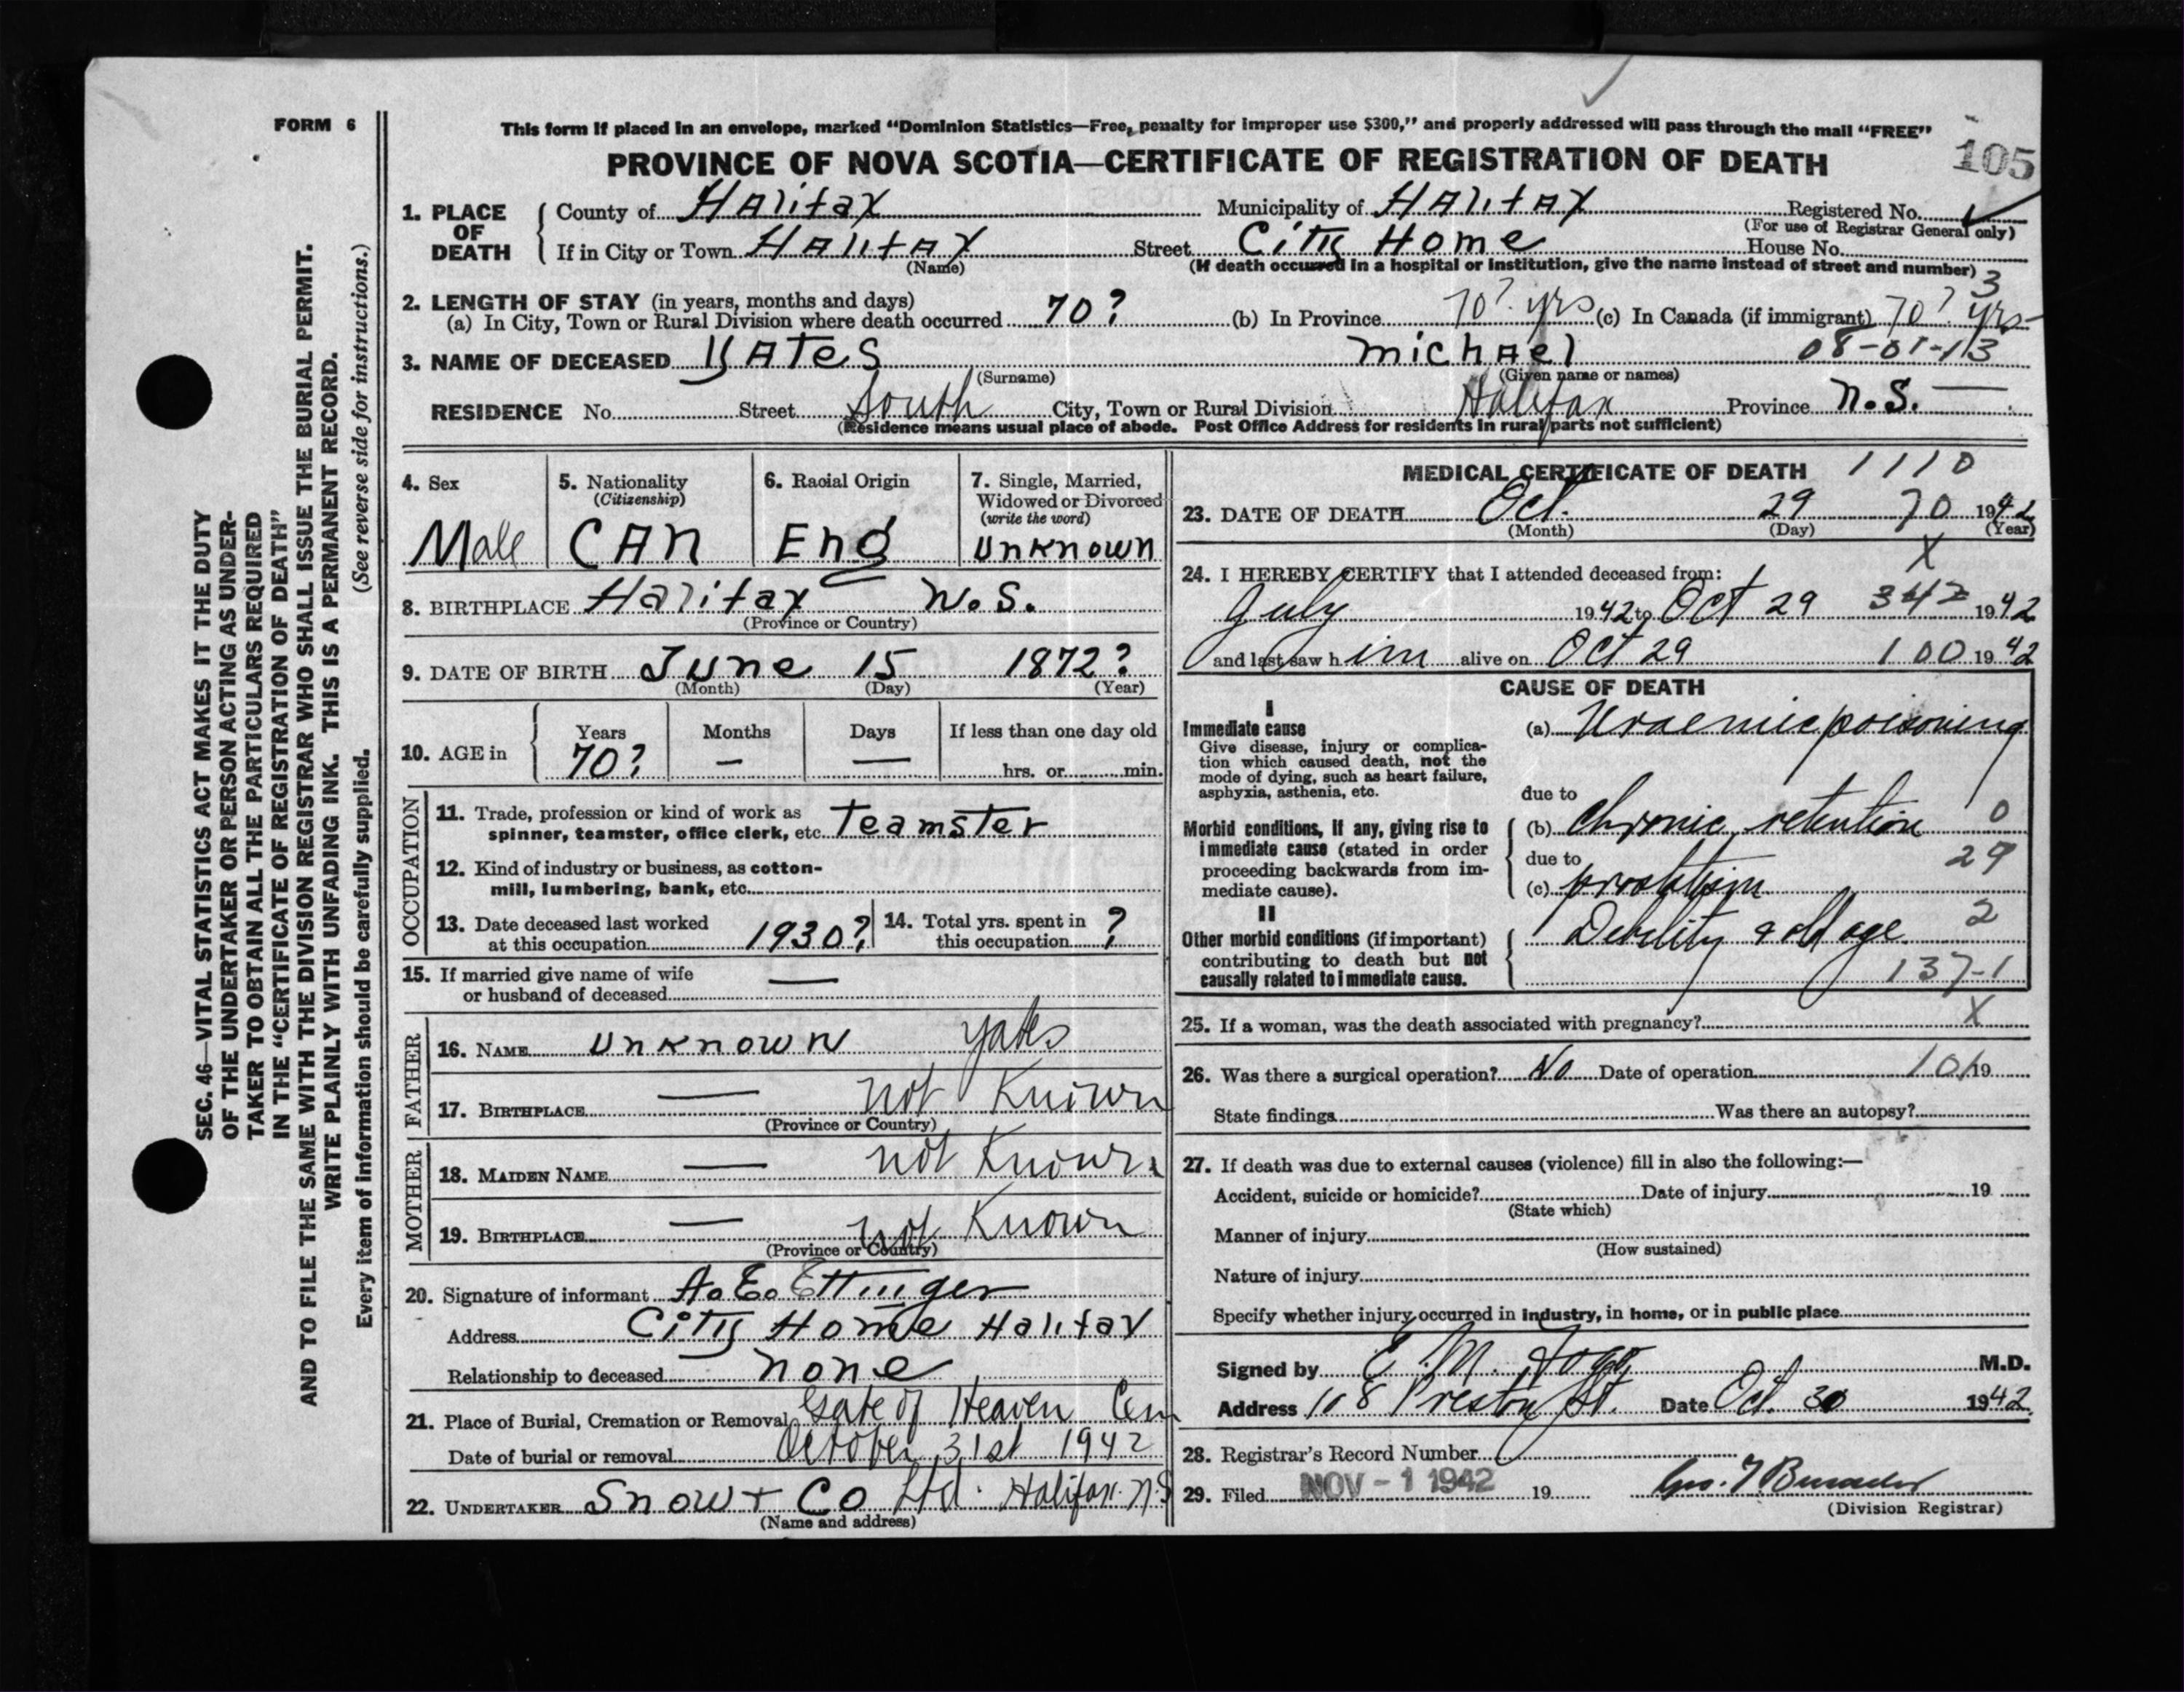 FORM 6
This form if placed in an envelope, marked “Dominion Statistics—Free, penalty for improper use $300,” and properly addressed will pass through the mail “FREE”
PROVINCE OF NOVA SCOTIA—CERTIFICATE OF REGISTRATION OF DEATH
105
1. PLACE OF DEATH
County of Halifax Municipality of Halifax Registered No.
(For use of Registrar General only)
If in City or Town Halifax Street City Home House No.
(Name) (If death occurred in a hospital or institution, give the name instead of street and number)
3
2. LENGTH OF STAY (in years, months and days)
(a) In City, Town or Rural Division where death occurred 70? (b) In Province 70? yrs (c) In Canada (if immigrant) 70? yrs
3. NAME OF DECEASED Yates Michael 08-01-13
(Surname) (Given name or names)
RESIDENCE No. Street South City, Town or Rural Division Halifax Province N.S.
(Residence means usual place of abode. Post Office Address for residents in rural parts not sufficient)
4. Sex
Male
5. Nationality
(Citizenship)
CAN
6. Racial Origin
Eng
7. Single, Married,
Widowed or Divorced
(write the word)
Unknown
8. BIRTHPLACE Halifax N.S.
(Province or Country)
9. DATE OF BIRTH June 15 1872?
(Month) (Day) (Year)
10. AGE in Years Months Days If less than one day old
70? — — hrs. or min.
OCCUPATION
11. Trade, profession or kind of work as
spinner, teamster, office clerk, etc. Teamster
12. Kind of industry or business, as cotton-
mill, lumbering, bank, etc.
13. Date deceased last worked
at this occupation 1930?
14. Total yrs. spent in
this occupation ?
15. If married give name of wife
or husband of deceased —
FATHER
16. NAME Unknown Yates
17. BIRTHPLACE — not Known
(Province or Country)
MOTHER
18. MAIDEN NAME — not Known
19. BIRTHPLACE — not Known
(Province or Country)
20. Signature of informant A. E. Ettinger
Address City Home Halifax
Relationship to deceased none
21. Place of Burial, Cremation or Removal Gate of Heaven Cem
Date of burial or removal October 31st 1942
22. UNDERTAKER Snow + Co Ltd. Halifax N.S
(Name and address)
MEDICAL CERTIFICATE OF DEATH 1110
23. DATE OF DEATH Oct. 29 70 1942
(Month) (Day) (Year)
X
24. I HEREBY CERTIFY that I attended deceased from:
July 1942 to Oct 29 342 1942
and last saw him alive on Oct 29 100 1942
CAUSE OF DEATH
I
Immediate cause
Give disease, injury or complica-
tion which caused death, not the
mode of dying, such as heart failure,
asphyxia, asthenia, etc.
(a) Uraemic poisoning
due to
Morbid conditions, if any, giving rise to
immediate cause (stated in order
proceeding backwards from im-
mediate cause).
(b) Chronic retention 0
due to 29
(c)
II
Other morbid conditions (if important)
contributing to death but not
causally related to immediate cause.
Debility & old age 2
137-1
25. If a woman, was the death associated with pregnancy? X
26. Was there a surgical operation? No Date of operation 19
State findings Was there an autopsy?
27. If death was due to external causes (violence) fill in also the following:—
Accident, suicide or homicide? Date of injury 19
(State which)
Manner of injury
(How sustained)
Nature of injury
Specify whether injury occurred in industry, in home, or in public place
Signed by E. M. M.D.
Address 108 Preston St. Date Oct. 30 1942
28. Registrar's Record Number
29. Filed NOV - 1 1942 19
(Division Registrar)
SEC. 46—VITAL STATISTICS ACT MAKES IT THE DUTY
OF THE UNDERTAKER OR PERSON ACTING AS UNDER-
TAKER TO OBTAIN ALL THE PARTICULARS REQUIRED
IN THE “CERTIFICATE OF REGISTRATION OF DEATH”
AND TO FILE THE SAME WITH THE DIVISION REGISTRAR WHO SHALL ISSUE THE BURIAL PERMIT.
WRITE PLAINLY WITH UNFADING INK. THIS IS A PERMANENT RECORD.
Every item of information should be carefully supplied. (See reverse side for instructions.)